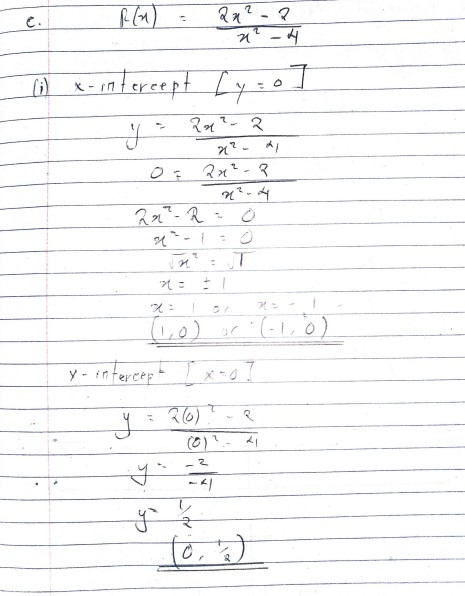 c. R(x) = (2x² - 2)/(x² - 4)
(i) x-intercept [y = 0]
y = (2x² - 2)/(x² - 4)
0 = (2x² - 2)/(x² - 4)
2x² - 2 = 0
x² - 1 = 0
√x² = √1
x = ± 1
x = 1 or x = - 1
(1, 0) or (-1, 0)
Y-intercept [x=0]
y = (2(0)² - 2)/((0)² - 4)
y = -2/-4
y = 1/2
(0, 1/2)